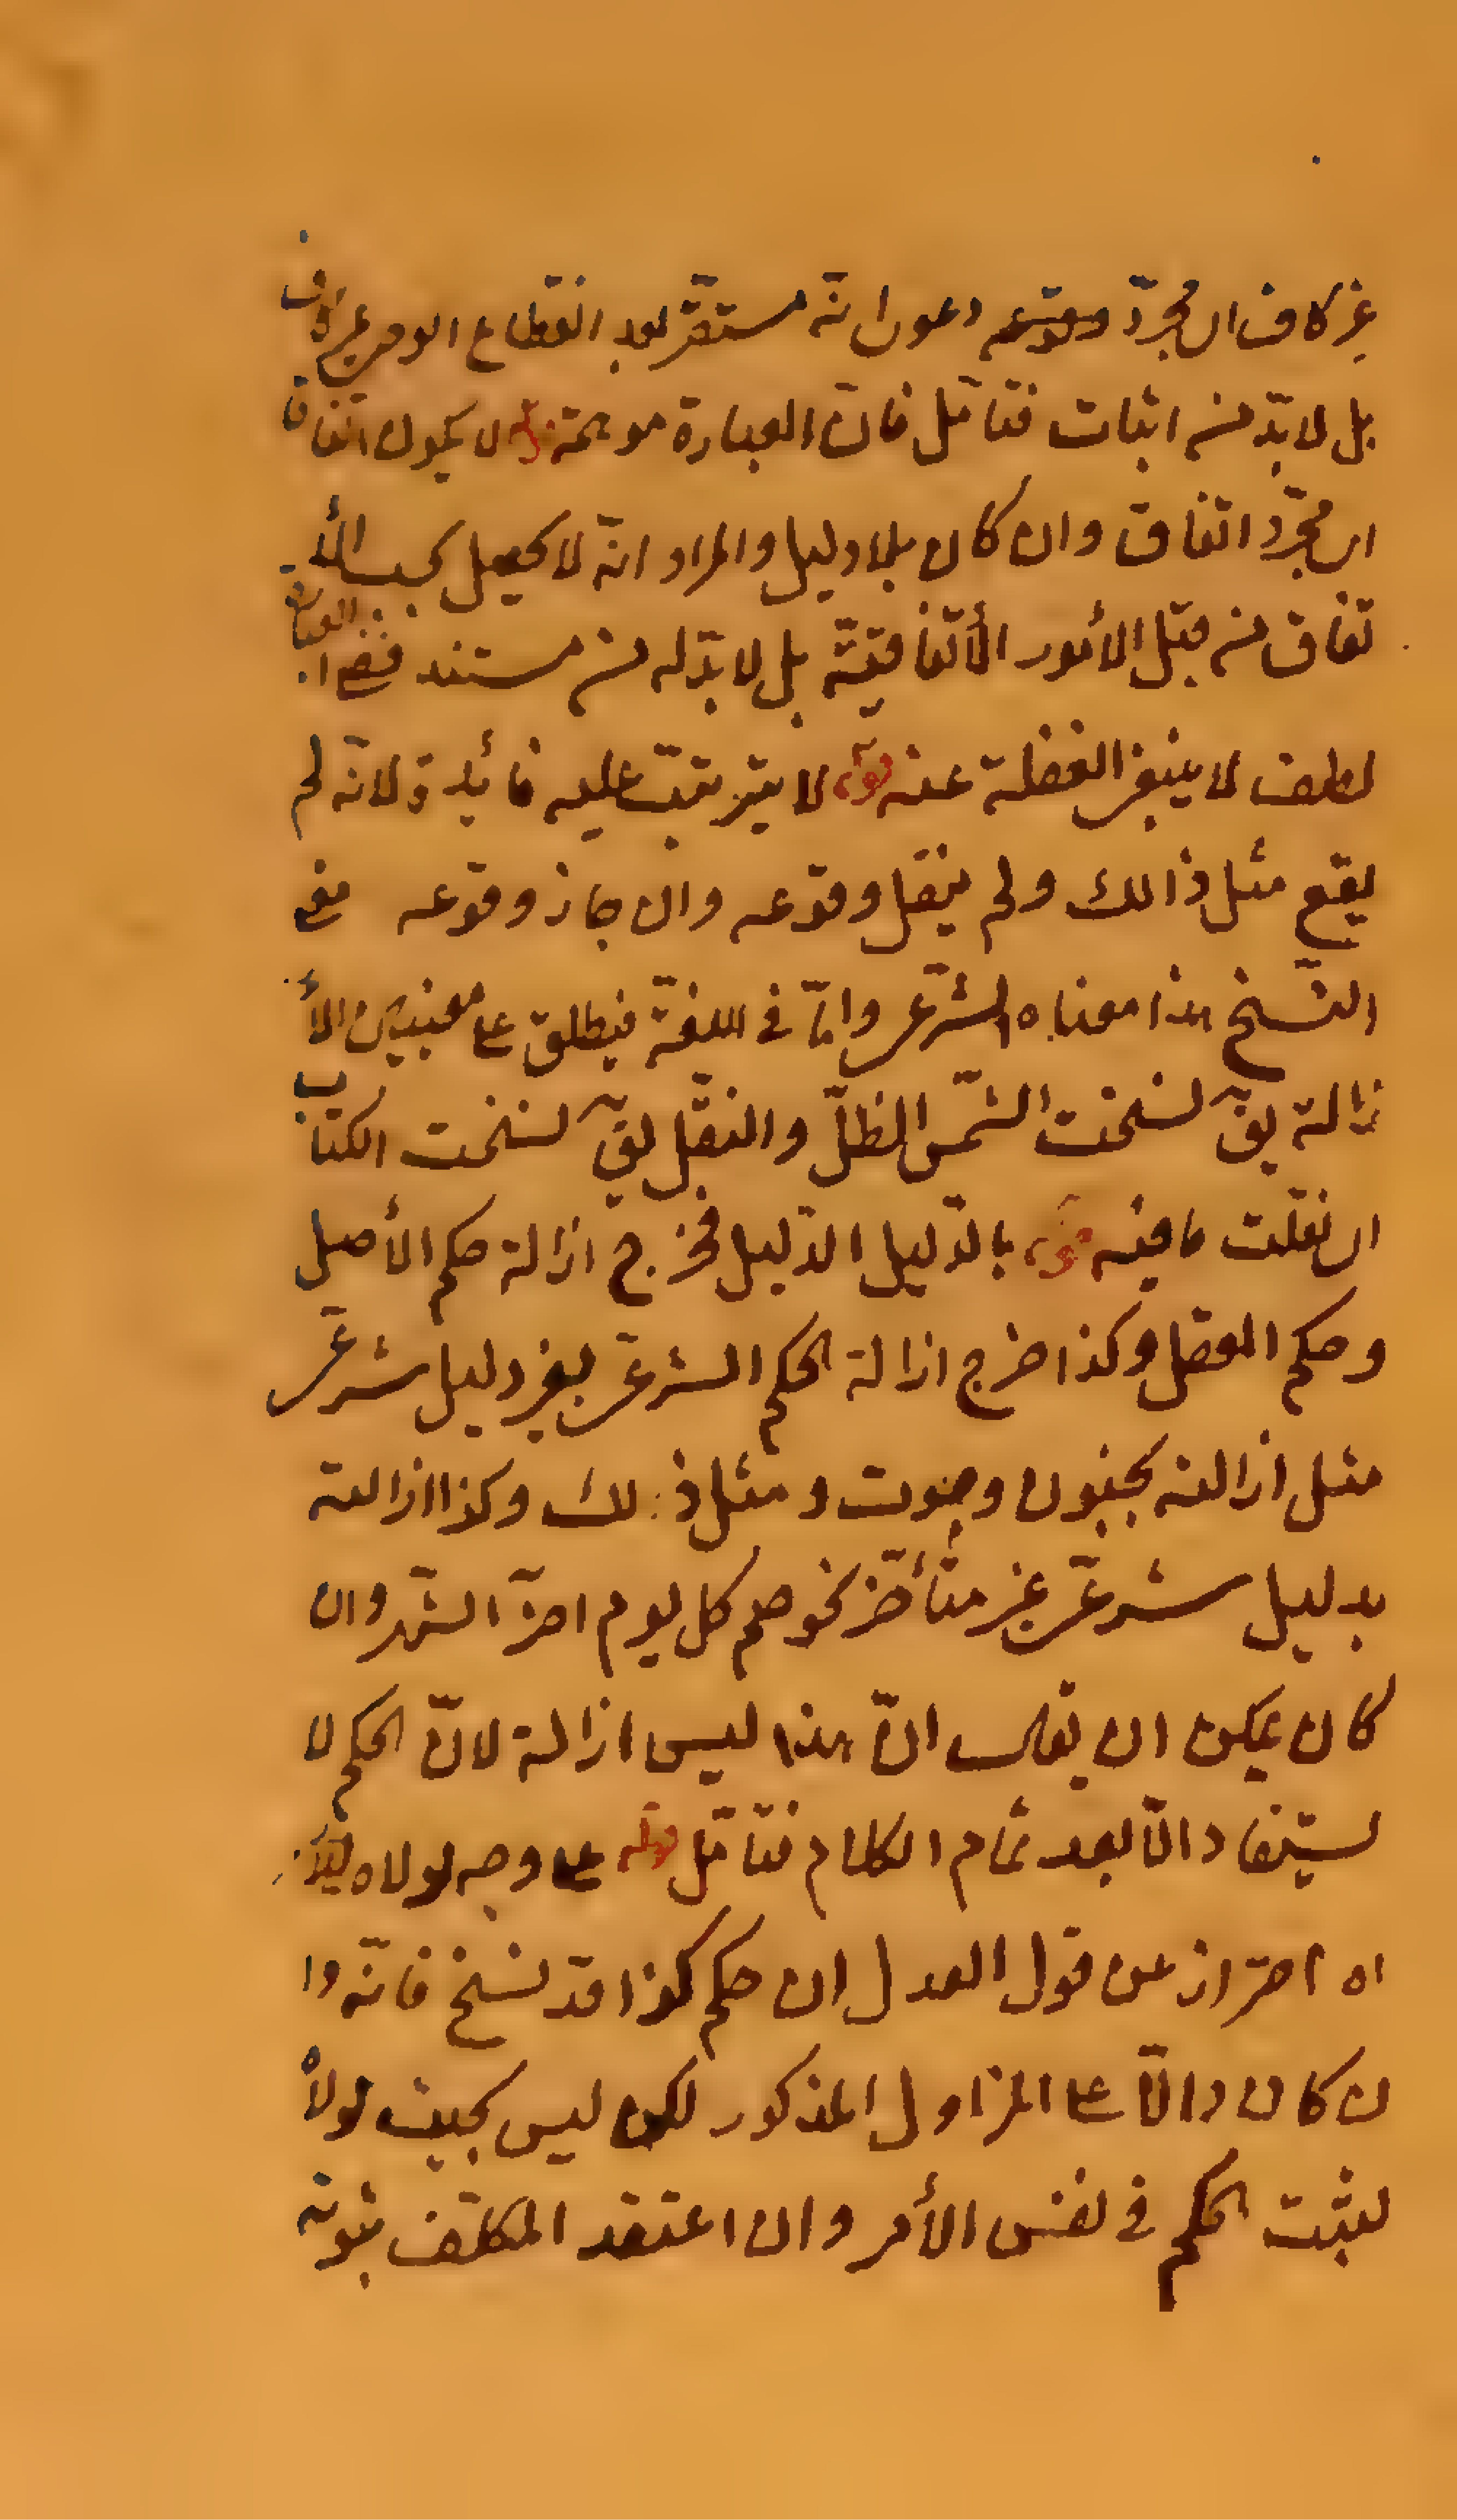 غير كاف اى مجرّد وقوعه دعوى انّه مستقرّ بعد انقطاع الوحى غير كاف
بل لا بدّ من اثبات فتأمّل فانّ العبارة موهمة قوله لا يكون اتفاق
اى مجرّد اتفاق وان كان بلا دليل والمراد انّه لا يحصل بحسب الأ
تفاق من قبل الأمور الأتّفاقيّة بل لا بدّ له من مستند ففى العبارة
لطف لا ينبغى الغفلة عنه قوله لا يترتب عليه فائدة لانّه لم
يقع مثل ذالك ولم ينقل وقوعه وان جاز وقوعه
النّسخ هذا معناه الشّرعى وامّا فى اللغة فيطلق على معنيين الأ
زالة يقّ نسخت الشّمس الظلّ والنقل يقّ نسخت الكتاب
اى نقلت ما فيه قوله بالدّليل الدّليل فخرج ازالة حكم الأصل
وحكم العقل وكذا خرج ازالة الحكم الشرعىّ بغير دليل شرعىّ
مثل ازالته بجنون وموت ومثل ذلك وكذا ازالته
بدليل شرعىّ غير متأخّر نحو صم كل يوم اخرّ الشّهر وان
كان يمكن ان يقال انّ هذا ليس ازالة لانّ الحكم لا
يستفاد الّا بعد تمام الكلام فتأمّل قوله على وجه لولاه
اه احتراز عن قول العدل ان حكم كذا قد نسخ فانّه وا
ن كان دالّا على المزاول المذكور لكن ليس بحيث لولاه
لثبت الحكم فى نفس الأمر وان اعتقد المكلّف ثبوته